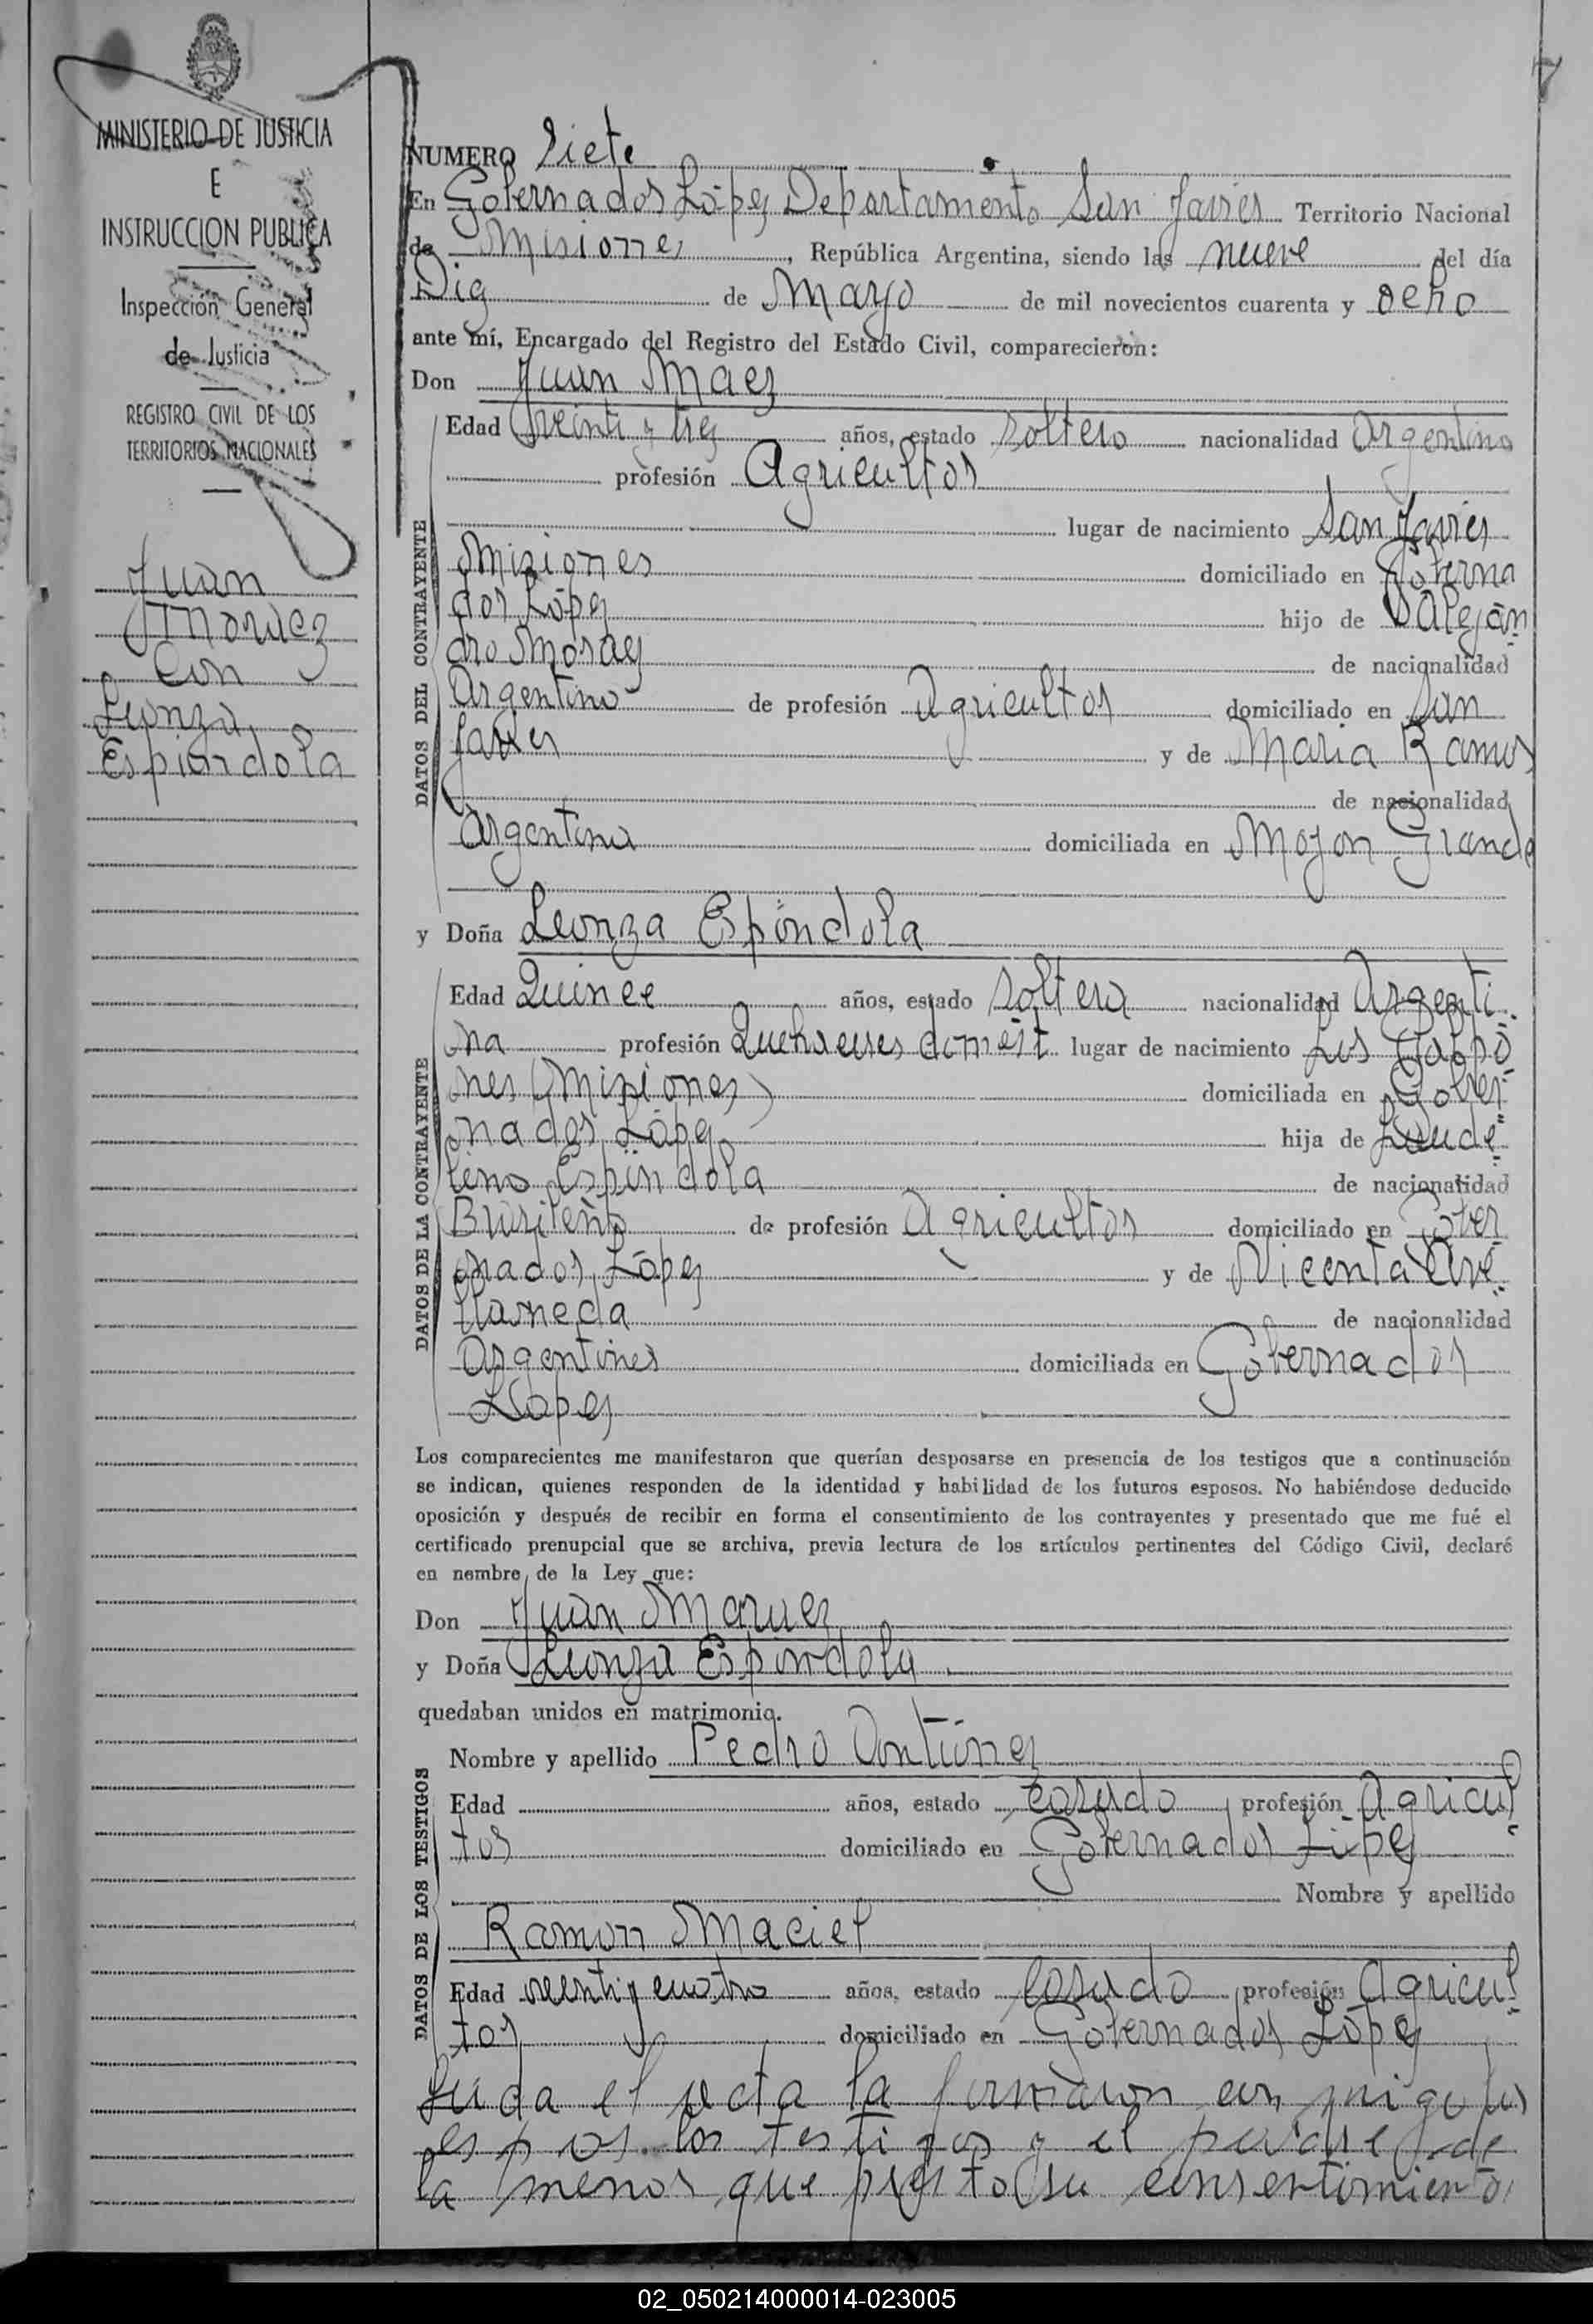 7
MINISTERIO DE JUSTICIA
E
INSTRUCCION PUBLICA
Inspección General
de Justicia
REGISTRO CIVIL DE LOS
TERRITORIOS NACIONALES
Juan
con
Leonza
Espindola
NUMERO Siete
En Gobernador López Departamento San Javier Territorio Nacional
de Misiones, República Argentina, siendo las nueve del día
Diez de Mayo de mil novecientos cuarenta y ocho
ante mí, Encargado del Registro del Estado Civil, comparecieron:
Don Juan
DATOS DEL CONTRAYENTE
Edad treinta y tres años, estado soltero nacionalidad Argentino
profesión Agricultor
lugar de nacimiento San Javier
Misiones domiciliado en Goberna
dor López hijo de Alejan
dro de nacionalidad
Argentino de profesión Agricultor domiciliado en San
Javier y de Maria Ramos
de nacionalidad
Argentina domiciliada en Mojon Grande
y Doña Leonza Espindola
DATOS DE LA CONTRAYENTE
Edad Quince años, estado soltera nacionalidad Argenti
na profesión Quehaceres domést. lugar de nacimiento Los Galpo
nes (Misiones) domiciliada en Gober
nador López hija de Laude
lino Espindola de nacionalidad
Brasileño de profesión Agricultor domiciliado en Gober
nador López y de Vicenta Ave
llaneda de nacionalidad
Argentina domiciliada en Gobernador
López
Los comparecientes me manifestaron que querían desposarse en presencia de los testigos que a continuación
se indican, quienes responden de la identidad y habilidad de los futuros esposos. No habiéndose deducido
oposición y después de recibir en forma el consentimiento de los contrayentes y presentado que me fué el
certificado prenupcial que se archiva, previa lectura de los artículos pertinentes del Código Civil, declaré
en nombre de la Ley que:
Don Juan
y Doña Leonza Espindola
quedaban unidos en matrimonio.
DATOS DE LOS TESTIGOS
Nombre y apellido Pedro
Edad años, estado casado profesión Agricul
tor domiciliado en Gobernador López
Nombre y apellido
Ramon Maciel
Edad veinti y cuatro años, estado casado profesión Agricul
tor domiciliado en Gobernador López
Leida el acta la firmaron con migo los
espos. los testigos y el padre de
la menor que presto su consentimiento
02_050214000014-023005